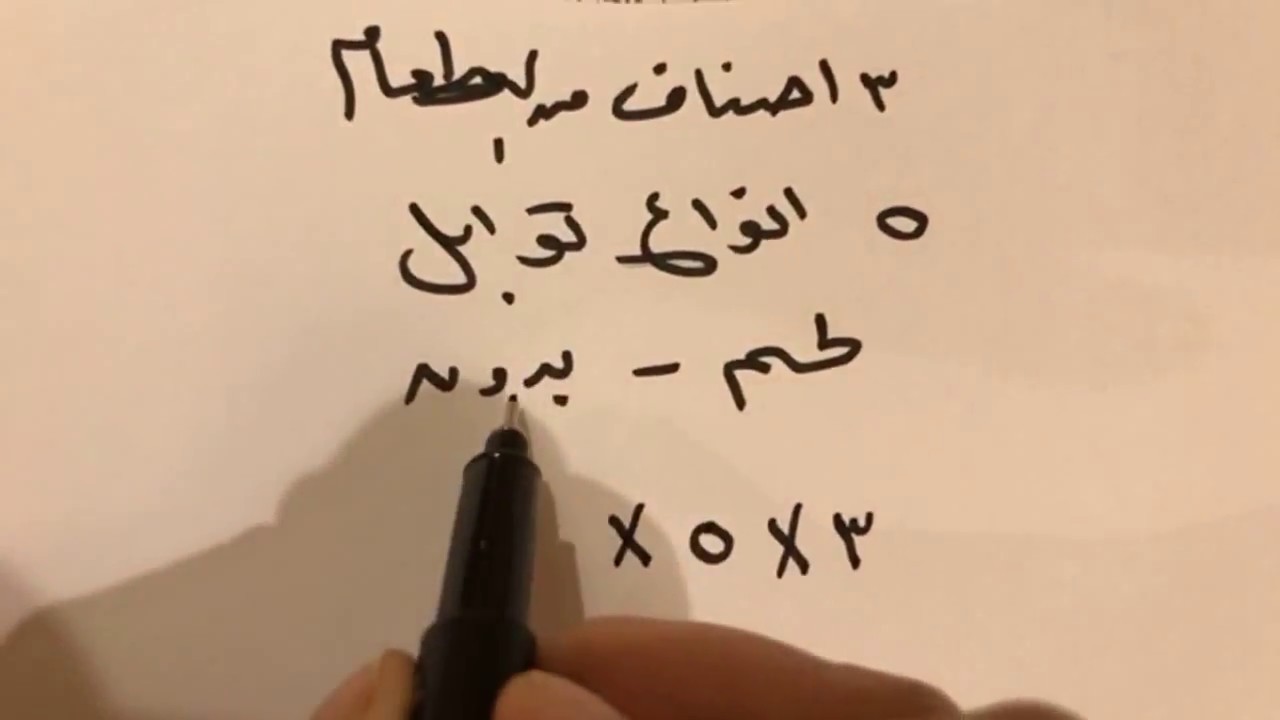 ٣ اصناف من الطعام
٥ انواع توابل
طعم - بدون
٣ × ٥ ×